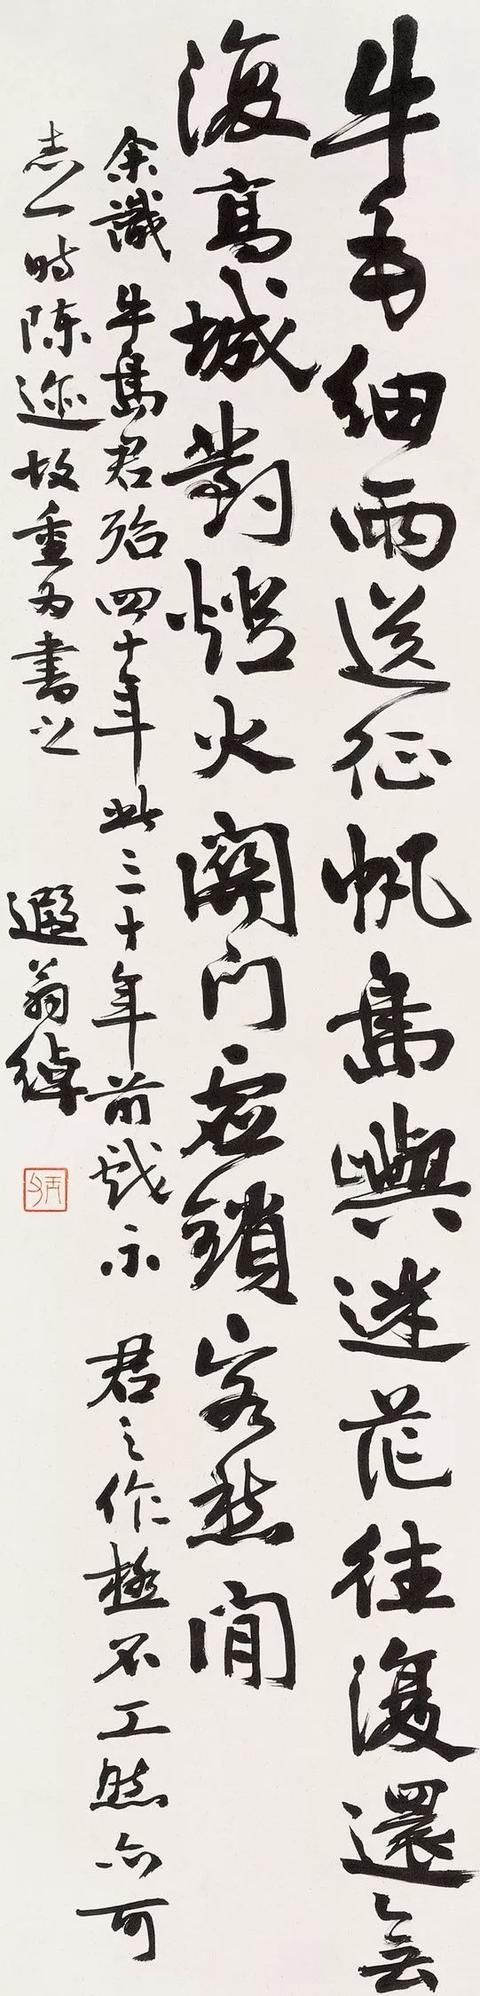 牛毛細雨送征帆島嶼迷茫往復還無
復高城對燈火關門虛鎖客愁閒
余識 牛島君殆四十年此三十年前戲示 君之作極不工然亦可
志一時陳迹故重為書之 遐翁綽